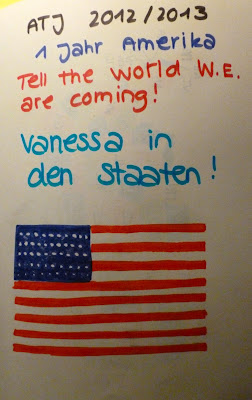 ATJ 2012/2013
1 Jahr Amerika
Tell the world W.E.
are coming!
Vanessa in
den Staaten!